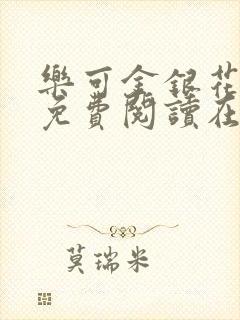 樂可金銀花
免費閱讀在
莫瑞米